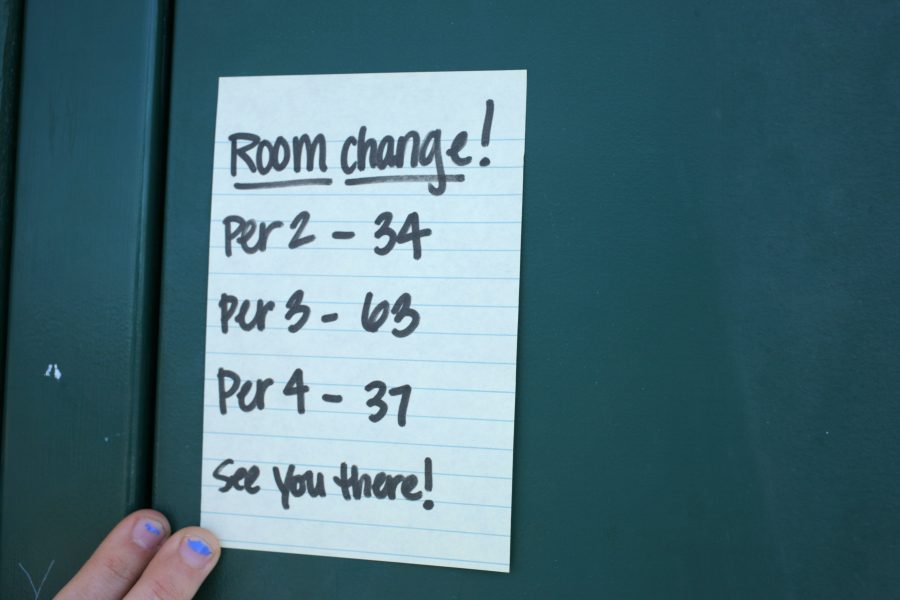 Room change!
Per 2 - 34
Per 3 - 63
Per 4 - 37
See you there!